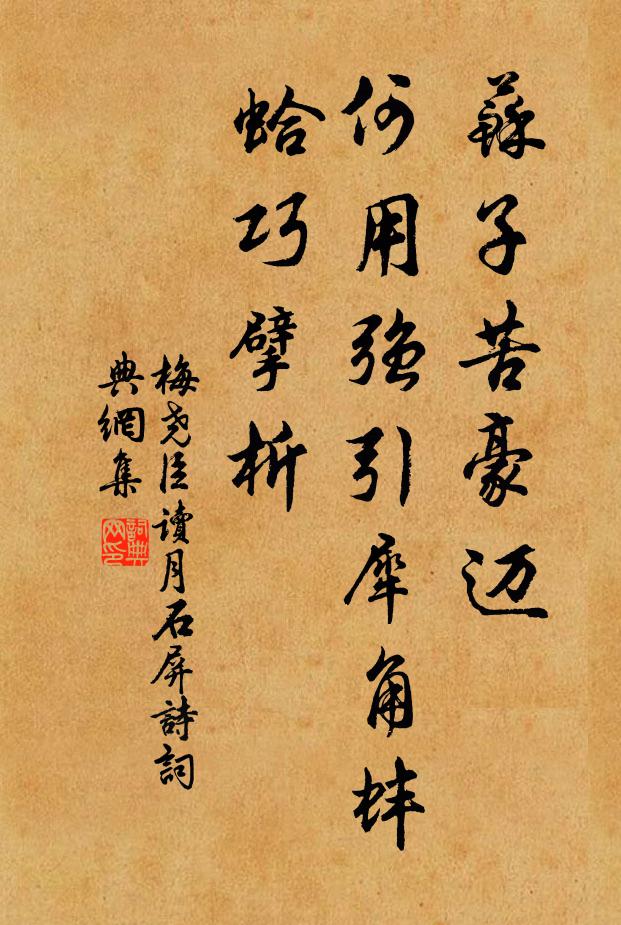 蘇子苦豪迈
何用强引犀角蚌
蛤巧擘析
梅尧臣讀月石屏詩詞
典網集
詞典网印